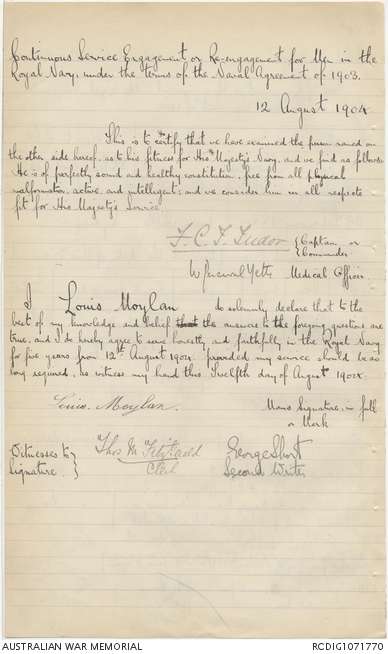 Continuous Service Engagement or Re-engagement for Men in the
Royal Navy, under the terms of the Naval Agreement of 1903.
12 August 1904
This is to certify that we have examined the person named on
the other side hereof, as to his fitness for His Majesty's Navy, and we find as follows
He is of perfectly sound and healthy constitution, free from all physical
malformation, active, and intelligent; and we consider him in all respects
fit for His Majesty's Service
F. C. T. Tudor {Captain or
Commander
W Perceval Yetts Medical Officer
I Louis Moylan do solemnly declare that to the
best of my knowledge and belief that the answers to the foregoing questions are
true, and I do hereby agree to serve honestly and faithfully in the Royal Navy
for five years from 12th August 1904. provided my service should be so
long required, as witness my hand this Twelfth day of August 1904.
Louis Moylan. Mans Signature in full
or Mark
Witnesses to } Thos M Fitzgerald George Short
Signature. } Clerk Second Writer
AUSTRALIAN WAR MEMORIAL RCDIG1071770